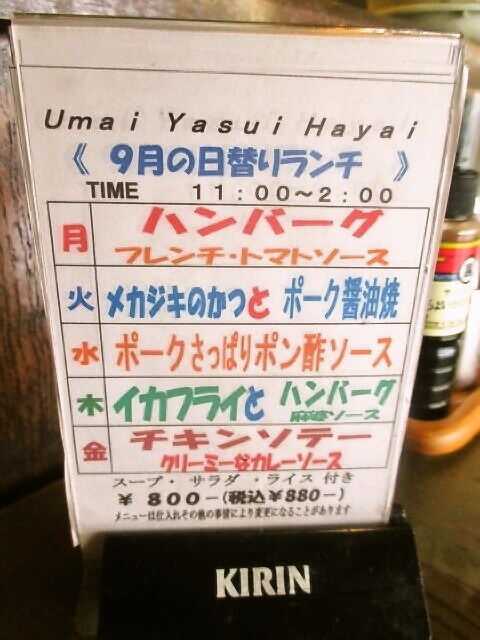 Umai Yasui Hayai
《 9月の日替りランチ 》
TIME 11:00～2:00
月 ハンバーグ
フレンチ・トマトソース
火 メカジキのかつと ポーク醤油焼
水 ポークさっぱりポン酢ソース
木 イカフライと ハンバーグ
麻婆ソース
金 チキンソテー
クリーミーなカレーソース
スープ・サラダ・ライス 付き
￥800-(税込￥880-)
メニューは仕入れその他の事情により変更になることがあります
KIRIN